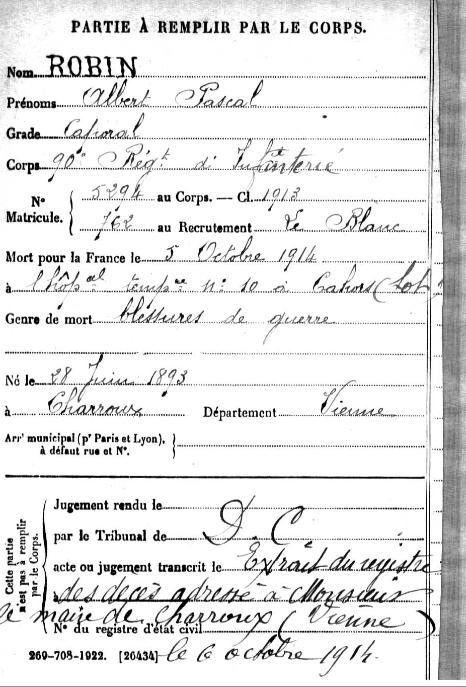 PARTIE À REMPLIR PAR LE CORPS.
Nom ROBIN
Prénoms Albert Pascal
Grade Caporal
Corps 90e Régt d'Infanterie
N° Matricule. { 5294 au Corps. — Cl. 1913
762 au Recrutement Le Blanc
Mort pour la France le 5 Octobre 1914
à l'hôpal tempre n° 10 à Cahors (Lot)
Genre de mort blessures de guerre
Né le 28 Juin 1893
à Charroux Département Vienne
Arrt municipal (pr Paris et Lyon), à défaut rue et N°. }
Cette partie n'est pas à remplir par le Corps.
Jugement rendu le
par le Tribunal de D. C.
acte ou jugement transcrit le Extrait du registre
à des décès adressé à Monsieur
le maire de Charroux (Vienne)
N° du registre d'état civil
269-708-1922. [26434] le 6 octobre 1914.